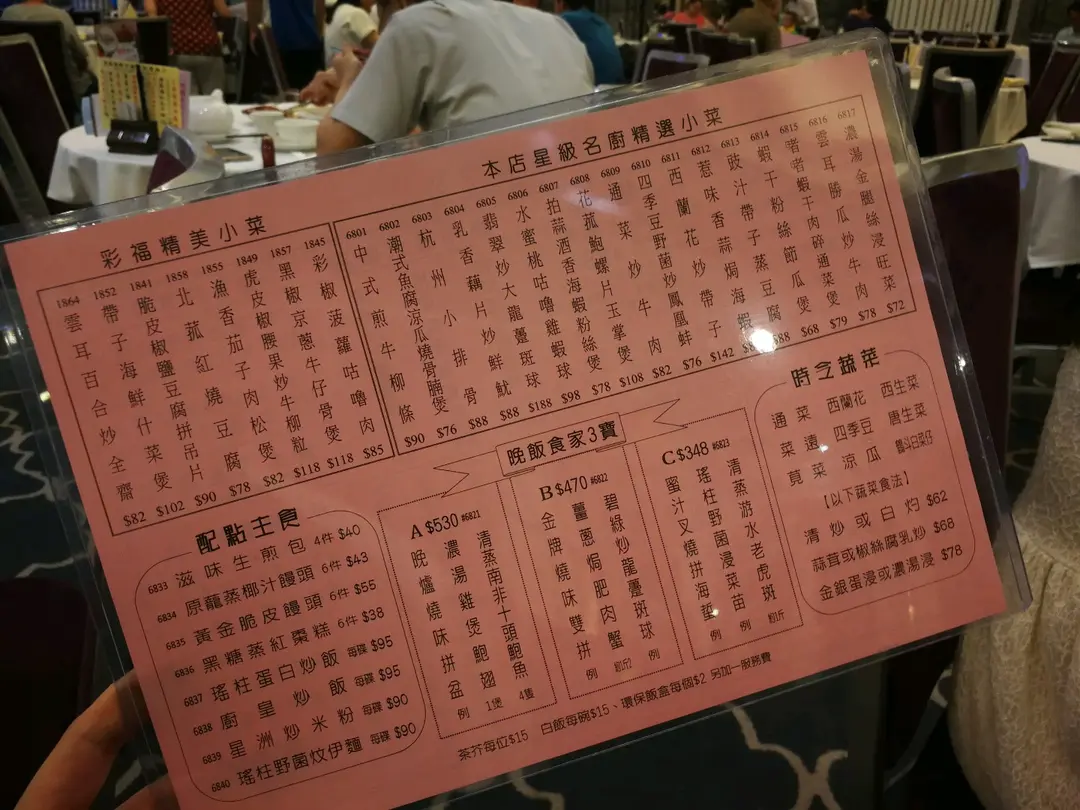 彩福精美小菜
1864 雲耳百合炒全齋 $82
1852 帶子海鮮什菜煲 $102
1841 脆皮椒鹽豆腐拼吊片 $90
1858 北菇紅燒豆腐 $78
1855 漁香茄子肉松煲 $82
1849 虎皮椒腰果炒牛柳粒 $118
1857 黑椒京蔥牛仔骨煲 $118
1845 彩椒菠蘿咕嚕肉 $85
本店星級名廚精選小菜
6801 中式煎牛柳條 $90
6802 潮式魚腐涼瓜燒骨腩煲 $76
6803 杭州小排骨 $88
6804 乳香藕片炒鮮魷 $88
6805 翡翠炒大龍躉斑球 $188
6806 水蜜桃咕嚕雞球 $98
6807 拍蒜酒香海蝦粉絲煲 $78
6808 花菰鮑螺片玉掌煲 $108
6809 通菜炒牛肉 $82
6810 四季豆野菌炒鳳凰蚌 $76
6811 西蘭花炒帶子 $142
6812 惹味香蒜焗海蝦
6813 豉汁帶子蒸豆腐 $88
6814 蝦干粉絲節瓜煲 $68
6815 者者蝦干肉碎通菜煲 $79
6816 雲耳勝瓜炒牛肉 $78
6817 濃湯金腿絲浸旺菜 $72
配點主食
6833 滋味生煎包 4件 $40
6834 原籠蒸椰汁饅頭 6件 $43
6835 黃金脆皮饅頭 6件 $55
6836 黑糖蒸紅棗糕 6件 $38
6837 瑤柱蛋白炒飯 每碟 $95
6838 廚皇炒飯 每碟 $95
6839 星洲炒米粉 每碟 $90
6840 瑤柱野菌炆伊麵 每碟 $90
晚飯食家3寶
A $530 #6821
清蒸南非十頭鮑魚 4隻
濃湯雞煲鮑翅 1煲
晚爐燒味拼盆 例
B $470 #6822
碧綠炒龍躉斑球 例
薑蔥焗肥肉蟹
金牌燒味雙拼 例
C $348 #6823
清蒸游水老虎斑
瑤柱野菌浸菜苗 例
蜜汁叉燒拼海蜇 例
時令蔬菜
通菜 西蘭花 西生菜
菜遠 四季豆 唐生菜
莧菜 涼瓜
【以下蔬菜食法】
清炒或白灼 $62
蒜茸或椒絲腐乳炒 $68
金銀蛋浸或濃湯浸 $78
茶芥每位$15 白飯每碗$15、環保飯盒每個$2 另加一服務費